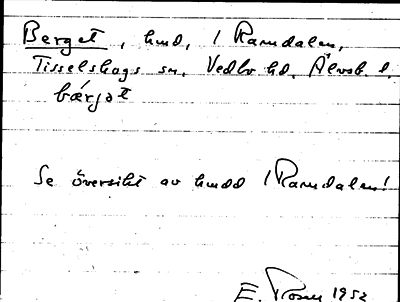 Berget, hmd, i Ramdalen,
Tisselskogs sn, Vedbo hd, Älvsb. l.
bærjət
Se översikt av hmdd i Ramdalen!
E. 1952